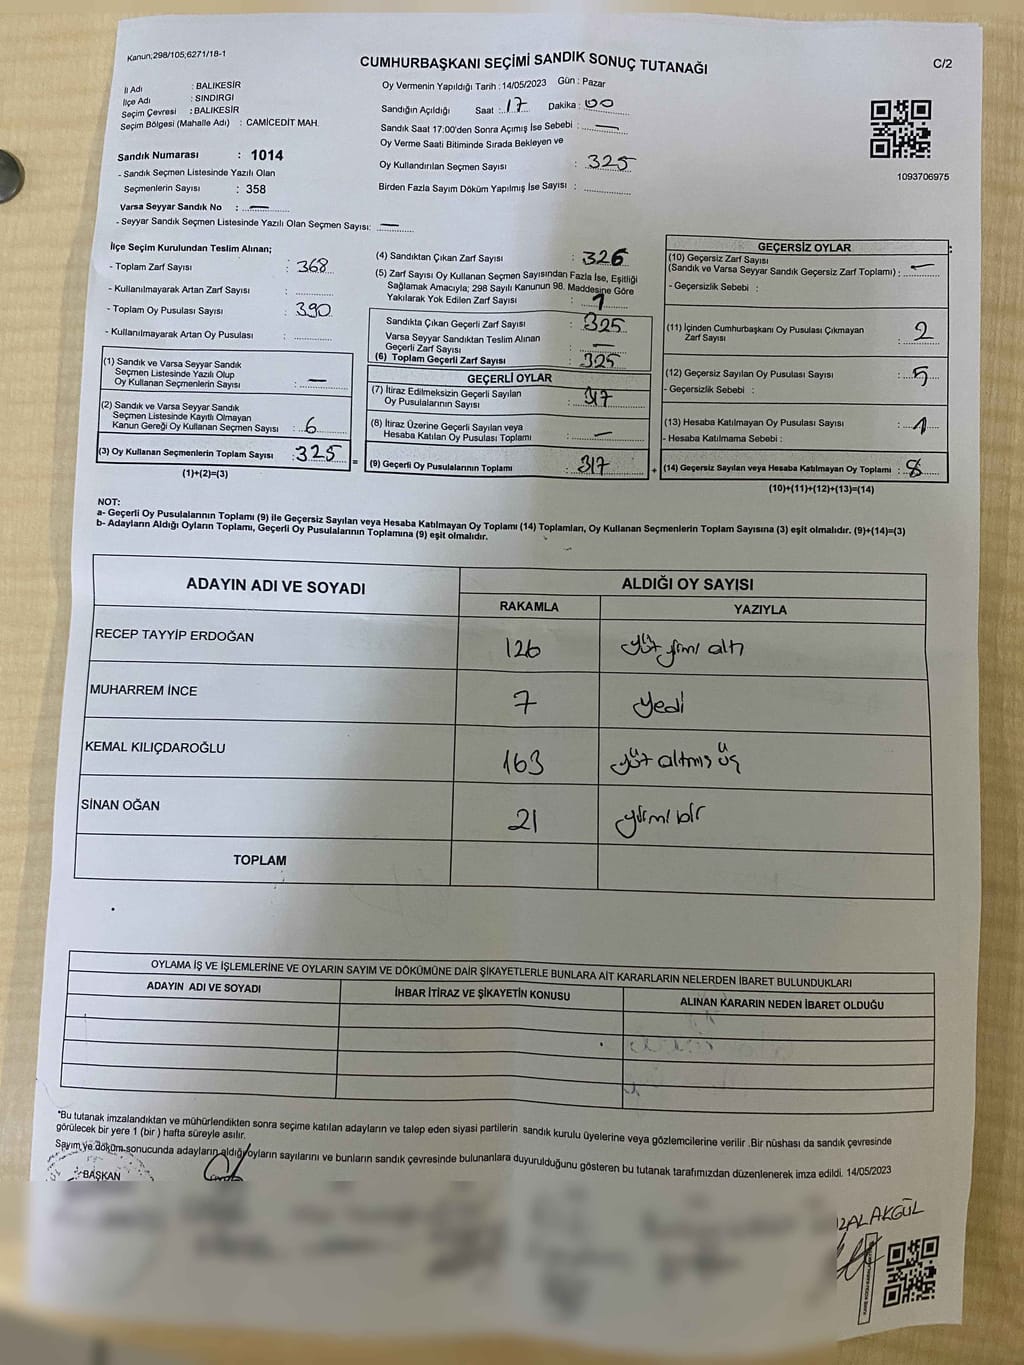 Kanun;298/105;6271/18-1
CUMHURBAŞKANI SEÇİMİ SANDIK SONUÇ TUTANAĞI
C/2
İl Adı : BALIKESİR
İlçe Adı : SINDIRGI
Seçim Çevresi : BALIKESİR
Seçim Bölgesi (Mahalle Adı) : CAMİCEDİT MAH.
Sandık Numarası : 1014
- Sandık Seçmen Listesinde Yazılı Olan
Seçmenlerin Sayısı : 358
Varsa Seyyar Sandık No : —
- Seyyar Sandık Seçmen Listesinde Yazılı Olan Seçmen Sayısı: —
Oy Vermenin Yapıldığı Tarih : 14/05/2023 Gün : Pazar
Sandığın Açıldığı Saat : 17 Dakika : 00
Sandık Saat 17:00'den Sonra Açımış İse Sebebi : —
Oy Verme Saati Bitiminde Sırada Bekleyen ve
Oy Kullandırılan Seçmen Sayısı : 325
Birden Fazla Sayım Döküm Yapılmış İse Sayısı :
1093706975
İlçe Seçim Kurulundan Teslim Alınan;
- Toplam Zarf Sayısı : 368
- Kullanılmayarak Artan Zarf Sayısı :
- Toplam Oy Pusulası Sayısı : 390
- Kullanılmayarak Artan Oy Pusulası :
(1) Sandık ve Varsa Seyyar Sandık
Seçmen Listesinde Yazılı Olup
Oy Kullanan Seçmenlerin Sayısı : —
(2) Sandık ve Varsa Seyyar Sandık
Seçmen Listesinde Kayıtlı Olmayan
Kanun Gereği Oy Kullanan Seçmen Sayısı : 6
(3) Oy Kullanan Seçmenlerin Toplam Sayısı : 325
(1)+(2)=(3)
(4) Sandıktan Çıkan Zarf Sayısı : 326
(5) Zarf Sayısı Oy Kullanan Seçmen Sayısından Fazla İse, Eşitliği
Sağlamak Amacıyla; 298 Sayılı Kanunun 98. Maddesine Göre
Yakılarak Yok Edilen Zarf Sayısı : 1
Sandıkta Çıkan Geçerli Zarf Sayısı : 325
Varsa Seyyar Sandıktan Teslim Alınan
Geçerli Zarf Sayısı : —
(6) Toplam Geçerli Zarf Sayısı : 325
=
GEÇERLİ OYLAR
(7) İtiraz Edilmeksizin Geçerli Sayılan
Oy Pusulalarının Sayısı : 317
(8) İtiraz Üzerine Geçerli Sayılan veya
Hesaba Katılan Oy Pusulası Toplamı : —
(9) Geçerli Oy Pusulalarının Toplamı : 317
+
GEÇERSİZ OYLAR
(10) Geçersiz Zarf Sayısı
(Sandık ve Varsa Seyyar Sandık Geçersiz Zarf Toplamı) : —
- Geçersizlik Sebebi :
(11) İçinden Cumhurbaşkanı Oy Pusulası Çıkmayan
Zarf Sayısı : 2
(12) Geçersiz Sayılan Oy Pusulası Sayısı : 5
- Geçersizlik Sebebi :
(13) Hesaba Katılmayan Oy Pusulası Sayısı : 1
- Hesaba Katılmama Sebebi :
(14) Geçersiz Sayılan veya Hesaba Katılmayan Oy Toplamı : 8
(10)+(11)+(12)+(13)=(14)
NOT:
a- Geçerli Oy Pusulalarının Toplamı (9) ile Geçersiz Sayılan veya Hesaba Katılmayan Oy Toplamı (14) Toplamları, Oy Kullanan Seçmenlerin Toplam Sayısına (3) eşit olmalıdır. (9)+(14)=(3)
b- Adayların Aldığı Oyların Toplamı, Geçerli Oy Pusulalarının Toplamına (9) eşit olmalıdır.
ADAYIN ADI VE SOYADI
ALDIĞI OY SAYISI
RAKAMLA YAZIYLA
RECEP TAYYİP ERDOĞAN 126 yüz yirmi altı
MUHARREM İNCE 7 yedi
KEMAL KILIÇDAROĞLU 163 yüz altmış üç
SİNAN OĞAN 21 yirmi bir
TOPLAM
OYLAMA İŞ VE İŞLEMLERİNE VE OYLARIN SAYIM VE DÖKÜMÜNE DAİR ŞİKAYETLERLE BUNLARA AİT KARARLARIN NELERDEN İBARET BULUNDUKLARI
ADAYIN ADI VE SOYADI İHBAR İTİRAZ VE ŞİKAYETİN KONUSU ALINAN KARARIN NEDEN İBARET OLDUĞU
*Bu tutanak imzalandıktan ve mühürlendikten sonra seçime katılan adayların ve talep eden siyasi partilerin sandık kurulu üyelerine veya gözlemcilerine verilir .Bir nüshası da sandık çevresinde
görülecek bir yere 1 (bir ) hafta süreyle asılır.
Sayım ve döküm sonucunda adayların aldığı oyların sayılarını ve bunların sandık çevresinde bulunanlara duyurulduğunu gösteren bu tutanak tarafımızdan düzenlenerek imza edildi. 14/05/2023
BAŞKAN
AKGÜL